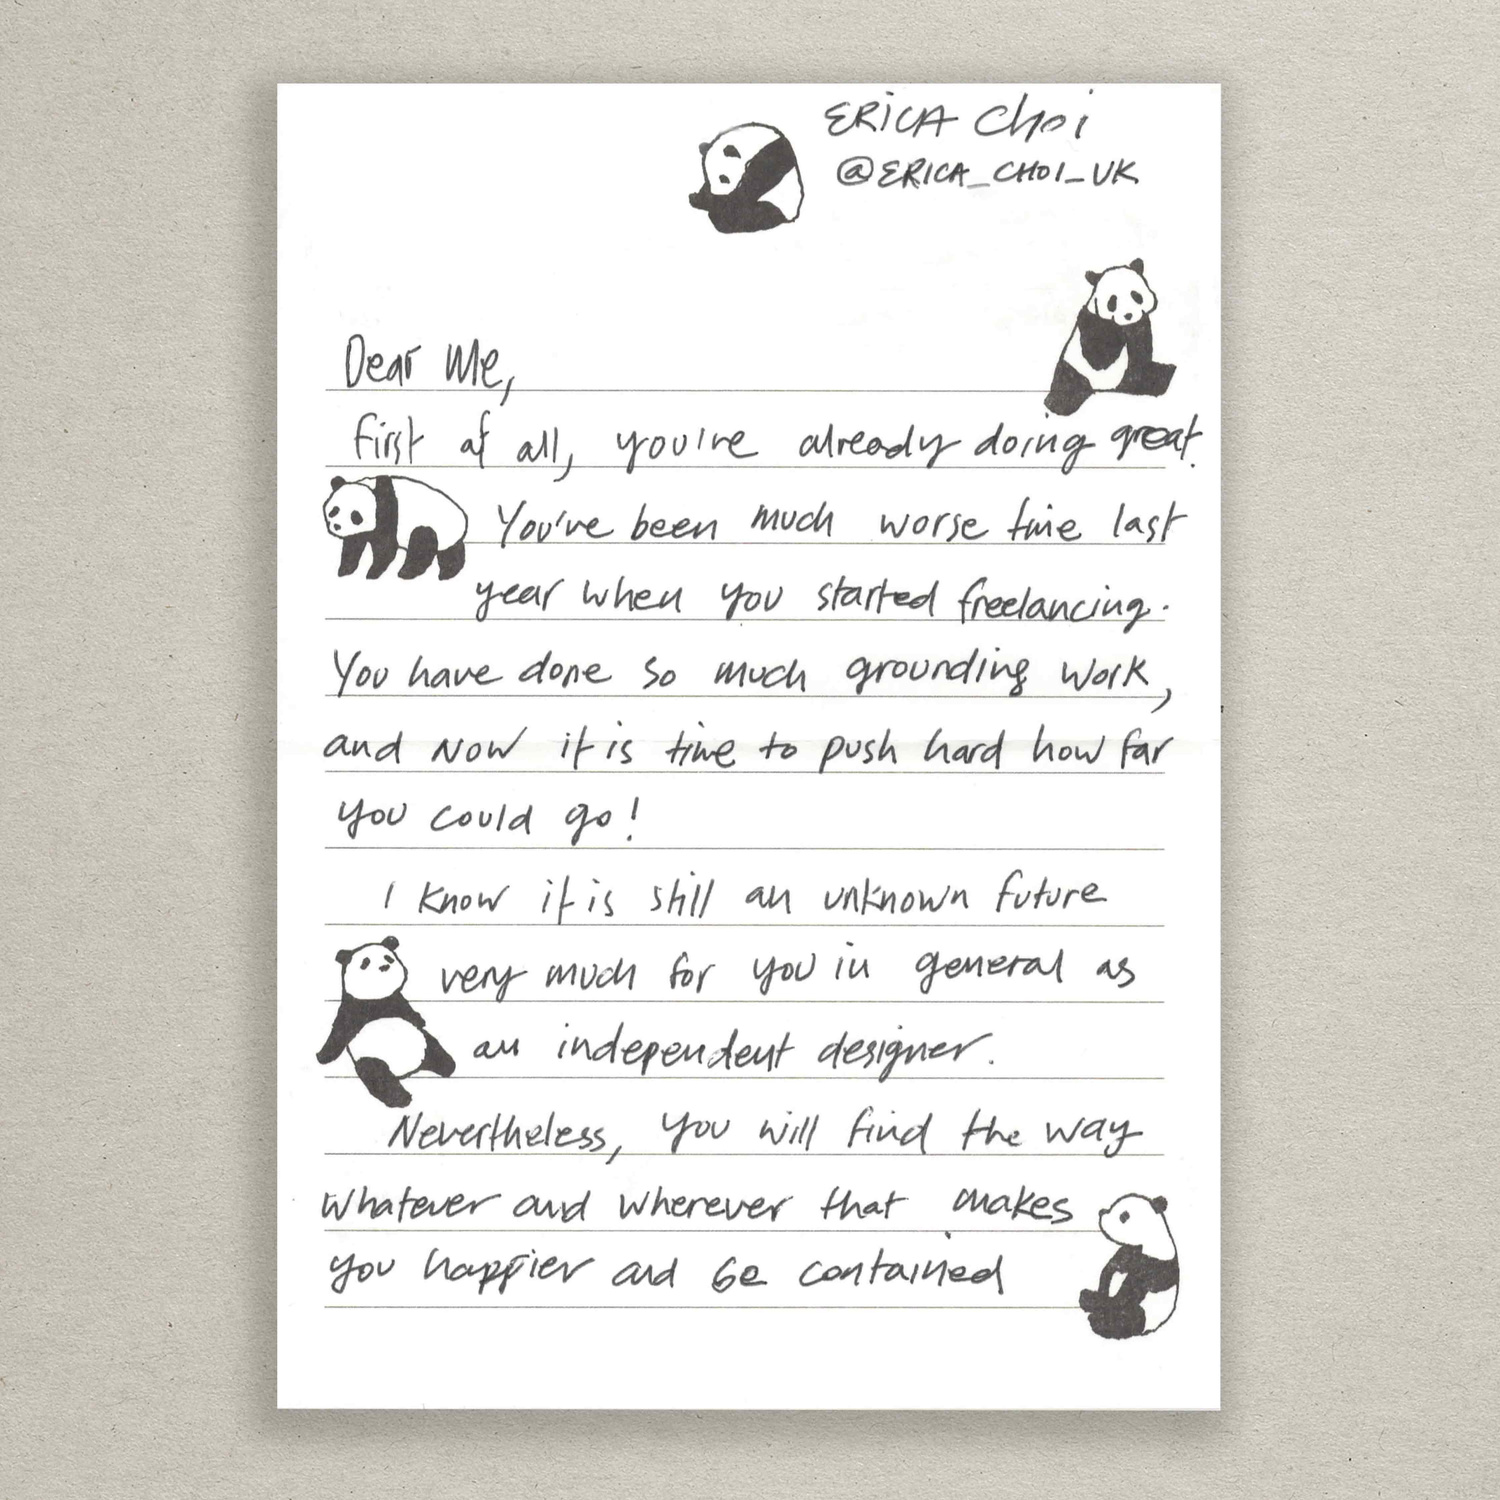 ERICA Choi
@ERICA_CHOI_UK
Dear Me,
First of all, you're already doing great.
You've been much worse time last
year when you started freelancing.
You have done so much grounding work,
and now it is time to push hard how far
you could go!
I know it is still an unknown future
very much for you in general as
an independent designer.
Nevertheless, you will find the way
whatever and wherever that makes
you happier and be contained